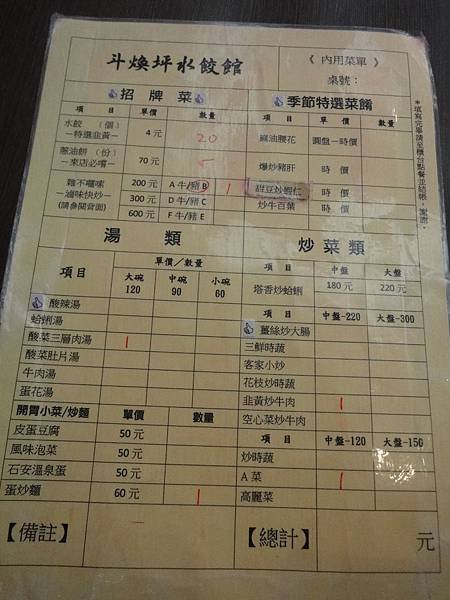 斗煥坪水餃館
《 內用菜單 》
桌號：
招 牌 菜
項 目 單 價 數 量
水餃 （個）
－特選韭黃－ 4 元 20
蔥油餅（份）
－來店必嚐－ 70 元
雜不囉嗦 200 元 A 牛/豬 B 1
－滷味快炒－ 300 元 D 牛/豬 C
(請參閱背面) 600 元 F 牛/豬 E
季節特選菜餚
項 目 單 價 數 量
麻油腰花 個盤－時價
爆炒豬肝 時 價
甜豆炒蝦仁 時 價
炒牛百葉 時 價
＊填寫完畢請至櫃台點餐並結帳，謝謝。
湯 類
項目 單 價／數 量
大碗 中碗 小碗
120 90 60
酸辣湯
蛤蜊湯
酸菜三層肉湯 1
酸菜肚片湯
牛肉湯
蛋花湯
開胃小菜/炒麵 單價 數量
皮蛋豆腐 50 元
風味泡菜 50 元
石安溫泉蛋 50 元
蛋炒麵 60 元 1
炒 菜 類
項 目 中盤 大盤
塔香炒蛤蜊 180 元 220 元
項 目 中盤-220 大盤-300
薑絲炒大腸
三鮮時蔬
客家小炒
花枝炒時蔬
韭黃炒牛肉 1
空心菜炒牛肉
項 目 中盤-120 大盤-150
炒時蔬
A 菜 1
高麗菜
【備註】
【總計】 元